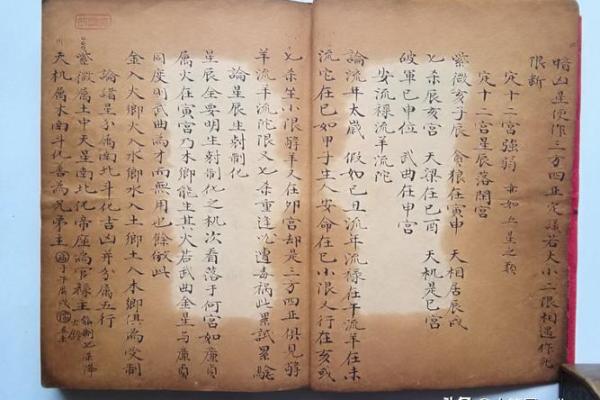 暗凶星便作三方四正定議若大小二限相遇作兇
限斷
定十二宮強弱
定十二宮星辰落閑宮
紫微亥子辰 貪狼在寅申 天相居辰戌
七杀辰亥宮 天梁在巳酉 天机是巳宮
破軍巳申位 武曲在申宮
安流祿流羊流陀
論流年太歲 假如己丑流年流祿在午流羊在未
流陀在巳如甲子生人安命在巳小限又行在亥或
七杀坐小限擎羊又在卯宮却是三方四正俱見擎
羊流羊流陀限又七杀重逢必遭毒病此累試累驗
論星辰生尅制化
星辰全要明生尅制化之机次看落于何宮如廉貞
屬火在寅宮乃木鄉能生其火若武曲金星与廉貞
同度則武曲為才而無用也餘倣此
金入火鄉火入水鄉水入土鄉土入木鄉俱為受制
論諸星分屬南北斗化吉凶并分屬五行
紫微属土中天星南北化帝座為官祿主
天机屬木南斗化善為兄弟主